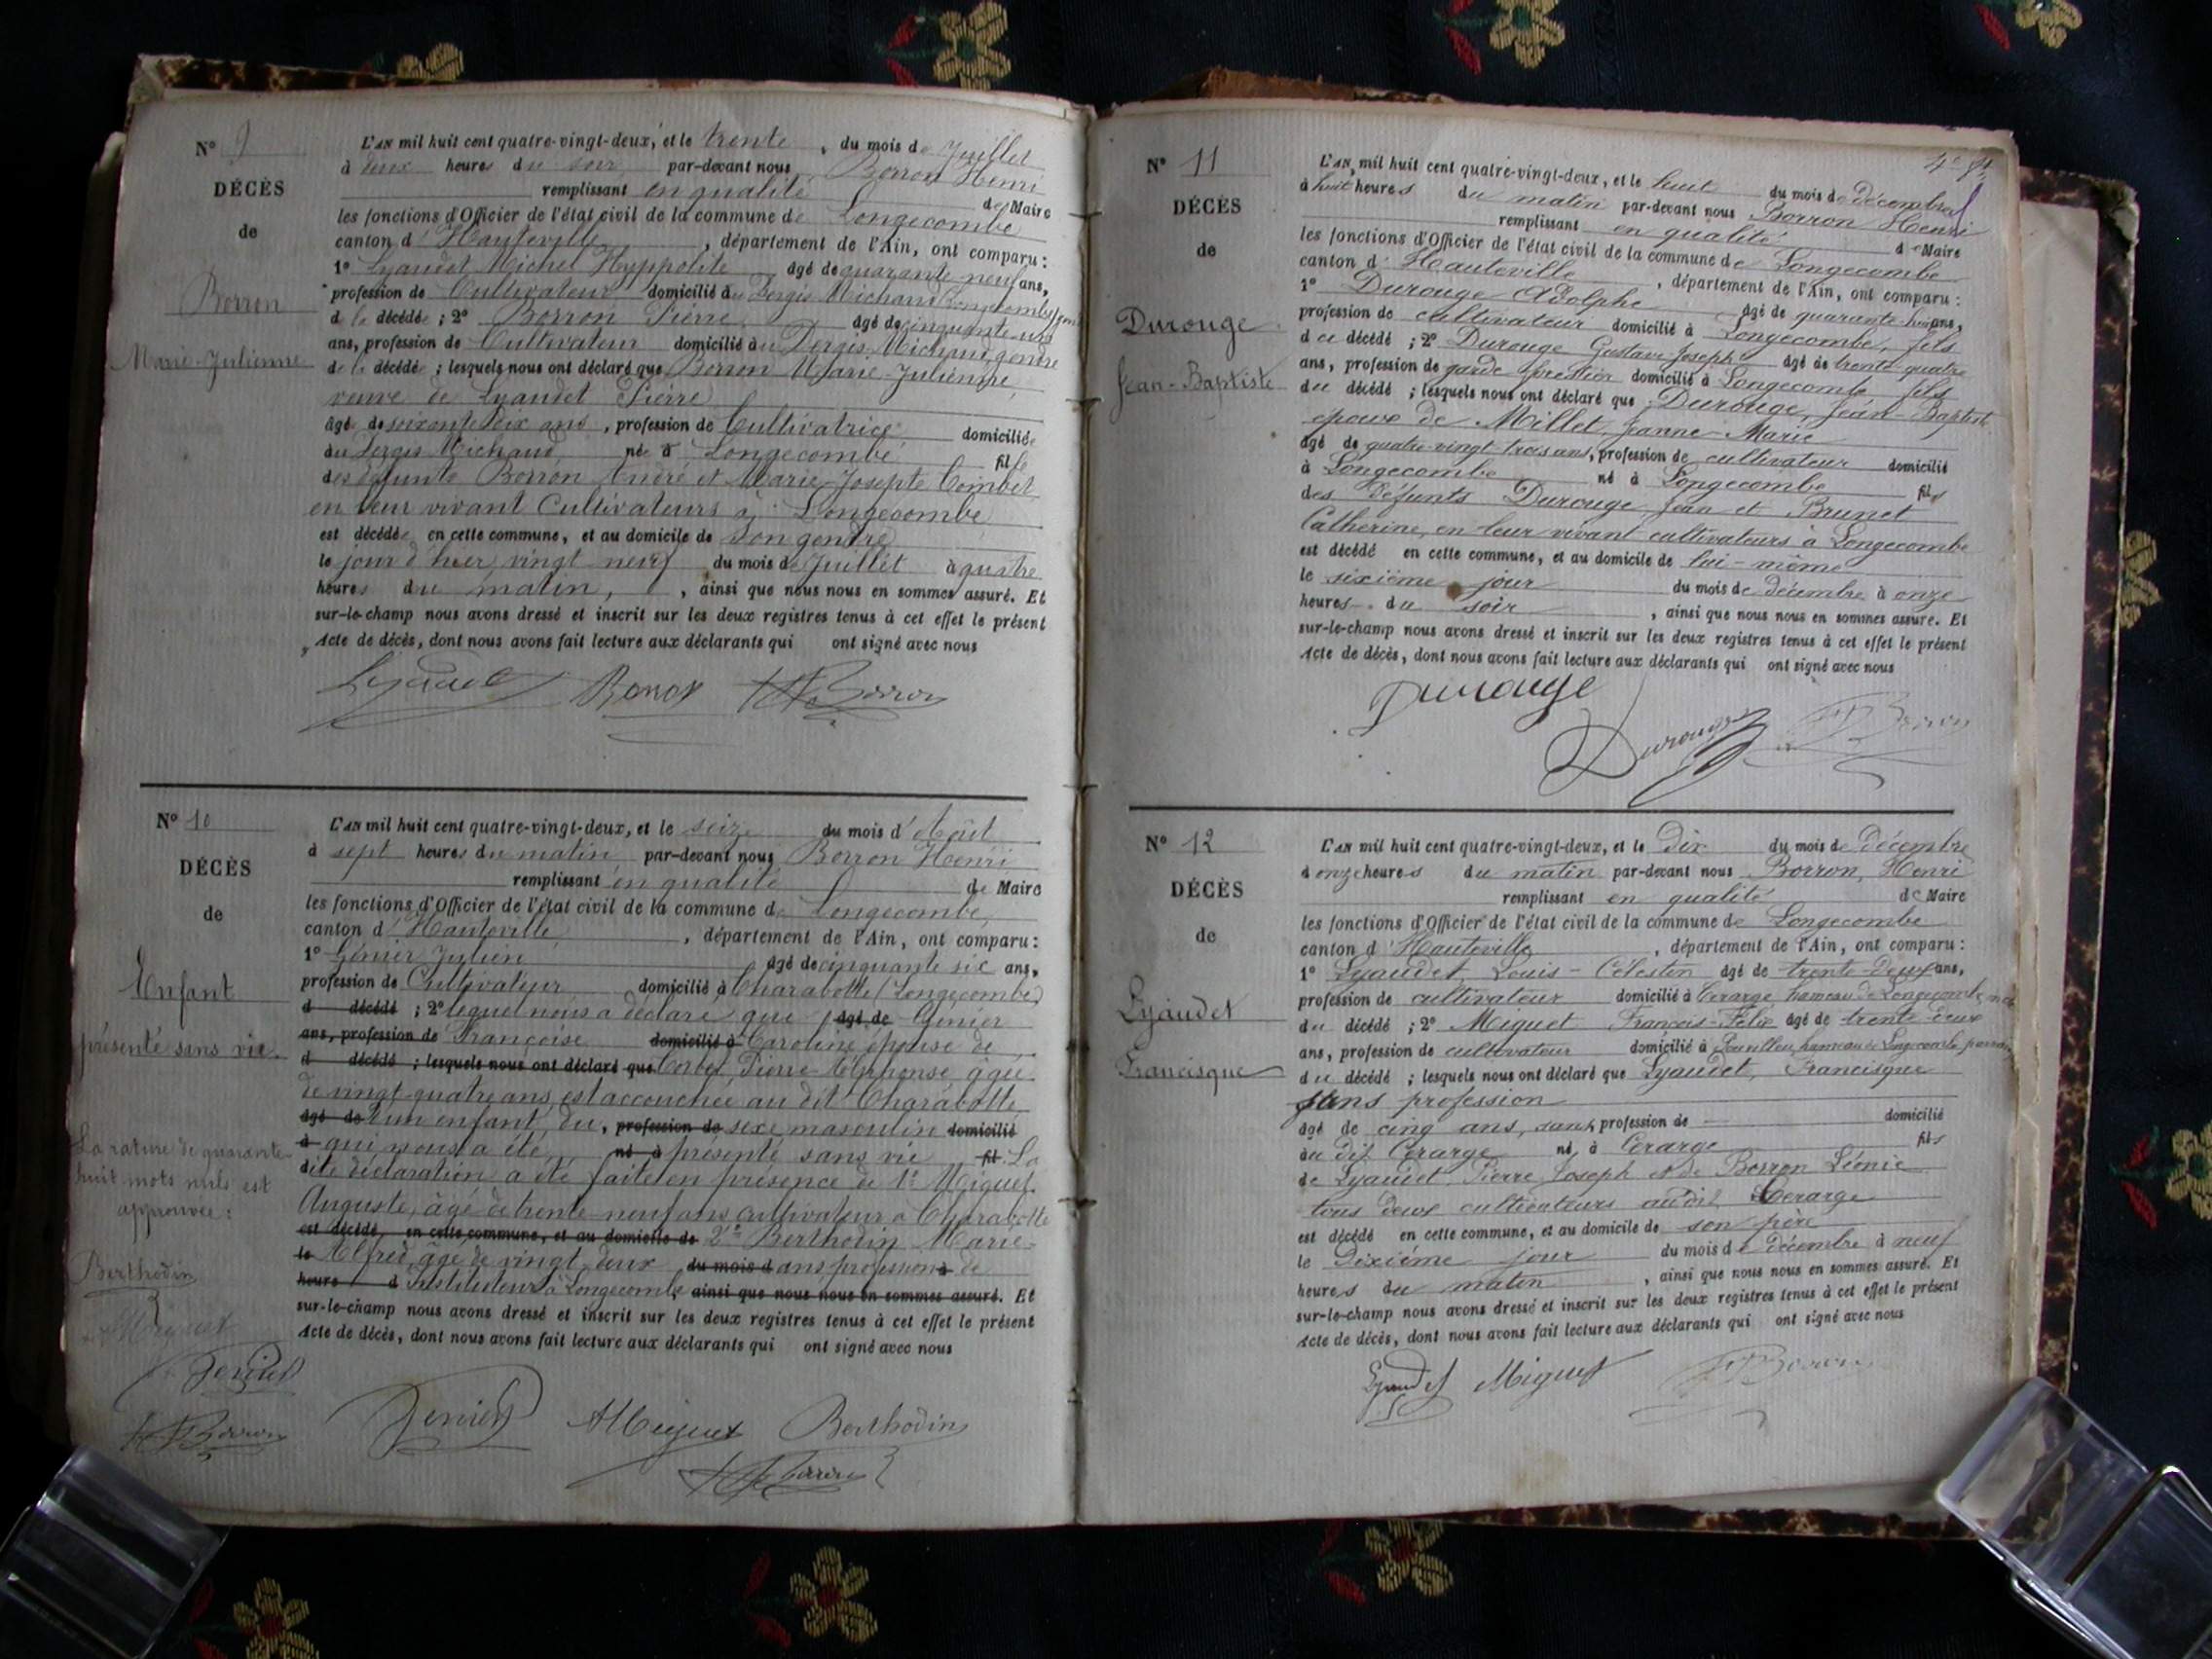 N° 9
DÉCÈS
de
Borron
Marie-Julienne
L'AN mil huit cent quatre-vingt-deux, et le trente, du mois de Juillet
à deux heures du soir par-devant nous Borron Henri
remplissant en qualité de Maire
les fonctions d'Officier de l'état civil de la commune de Longecombe
canton d'Hauteville, département de l'Ain, ont comparu :
1° Lyaudet Michel Hyppolite âgé de quarante neuf ans,
profession de Cultivateur domicilié au Dergis Michaud
de la décédée ; 2° Borron Pierre âgé de cinquante un
ans, profession de Cultivateur domicilié au Dergis-Michaud gendre
de la décédée ; lesquels nous ont déclaré que Borron Marie-Julienne,
veuve de Lyaudet Pierre
âgée de soixante dix ans, profession de Cultivatrice domiciliée
au Dergis Michaud, née à Longecombe fille
des défunts Borron André et Marie-Josepte Combet
en leur vivant Cultivateurs à Longecombe
est décédée en cette commune, et au domicile de son gendre
le jour d'hier vingt neuf du mois de Juillet à quatre
heures du matin, ainsi que nous nous en sommes assuré. Et
sur-le-champ nous avons dressé et inscrit sur les deux registres tenus à cet effet le présent
Acte de décès, dont nous avons fait lecture aux déclarants qui ont signé avec nous
Borron
N° 10
DÉCÈS
de
Enfant
présenté sans vie.
La rature de quarante
huit mots nuls est
approuvée :
Berthodin
Miguet
Borron
L'AN mil huit cent quatre-vingt-deux, et le seize du mois d'Août
à sept heures du matin par-devant nous Borron Henri
remplissant en qualité de Maire
les fonctions d'Officier de l'état civil de la commune de Longecombe,
canton d'Hauteville, département de l'Ain, ont comparu :
1° Génier Julien âgé de cinquante six ans,
profession de Cultivateur domicilié à Charabotte (Longecombe)
d décédé ; 2° lequel nous a déclaré que âgé de Génier
ans, profession de Françoise domicilié à Caroline épouse de
d décédé ; lesquels nous ont déclaré que Pierre Alphonse âgée
de vingt quatre ans, est accouchée au dit Charabotte
âgé de d'un enfant, du, profession de sexe masculin domicilié
à qui nous a été né à présenté sans vie fil. La
dite déclaration a été faite en présence de 1° Miguet
Auguste, âgé de trente-neuf ans cultivateur à Charabotte
est décédé en cette commune, et au domicile de 2° Berthodin Marie-
le Alfred, âgé de vingt deux du mois d ans, profession à de
heure d Instituteur à Longecombe ainsi que nous nous en sommes assuré. Et
sur-le-champ nous avons dressé et inscrit sur les deux registres tenus à cet effet le présent
Acte de décès, dont nous avons fait lecture aux déclarants qui ont signé avec nous
Miguet Berthodin
Borron
N° 11
DÉCÈS
de
Durouge
Jean-Baptiste
L'AN mil huit cent quatre-vingt-deux, et le huit du mois de décembre
à huit heures du matin par-devant nous Borron Henri
remplissant en qualité de Maire
les fonctions d'Officier de l'état civil de la commune de Longecombe
canton d'Hauteville, département de l'Ain, ont comparu :
1° Durouge Adolphe âgé de quarante-huit ans,
profession de cultivateur domicilié à Longecombe, fils
du décédé ; 2° Durouge Gustave Joseph âgé de trente quatre
ans, profession de garde forestier domicilié à Longecombe fils
du décédé ; lesquels nous ont déclaré que Durouge, Jean-Baptiste
époux de Millet Jeanne-Marie
âgé de quatre-vingt trois ans, profession de cultivateur domicilié
à Longecombe né à Longecombe fils
des défunts Durouge Jean et Brunet
Catherine, en leur vivant cultivateurs à Longecombe
est décédé en cette commune, et au domicile de lui-même
le sixième jour du mois de décembre à onze
heures du soir, ainsi que nous nous en sommes assuré. Et
sur-le-champ nous avons dressé et inscrit sur les deux registres tenus à cet effet le présent
Acte de décès, dont nous avons fait lecture aux déclarants qui ont signé avec nous
Durouge
Durouge Borron
N° 12
DÉCÈS
de
Lyaudet
Francisque
L'AN mil huit cent quatre-vingt-deux, et le Dix du mois de Décembre
à onze heures du matin par-devant nous Borron, Henri
remplissant en qualité de Maire
les fonctions d'Officier de l'état civil de la commune de Longecombe
canton d'Hauteville, département de l'Ain, ont comparu :
1° Lyaudet Louis-Célestin âgé de trente-deux ans,
profession de cultivateur domicilié à Cerarge, hameau de Longecombe
du décédé ; 2° Miguet François-Félix âgé de trente-deux
ans, profession de cultivateur domicilié à hameau de Longecombe parrain
du décédé ; lesquels nous ont déclaré que Lyaudet, Francisque
sans profession
âgé de cinq ans, sans profession de — domicilié
au dit Cerarge né à Cerarge fils
de Lyaudet, Pierre Joseph et de Borron Léonie
tous deux cultivateurs audit Cerarge
est décédé en cette commune, et au domicile de son père
le Dixième jour du mois de décembre à neuf
heures du matin, ainsi que nous nous en sommes assuré. Et
sur-le-champ nous avons dressé et inscrit sur les deux registres tenus à cet effet le présent
Acte de décès, dont nous avons fait lecture aux déclarants qui ont signé avec nous
Lyaudet Miguet Borron